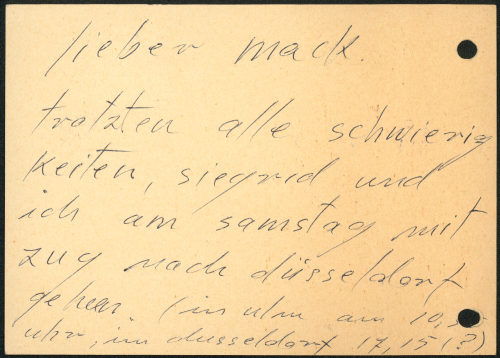 lieber mack.
trotzten alle schwierig
keiten, siegrid und
ich am samstag mit
zug nach düsseldorf
gehen. (in ulm am 10,
uhr, in dusseldorf 17,15 (?)